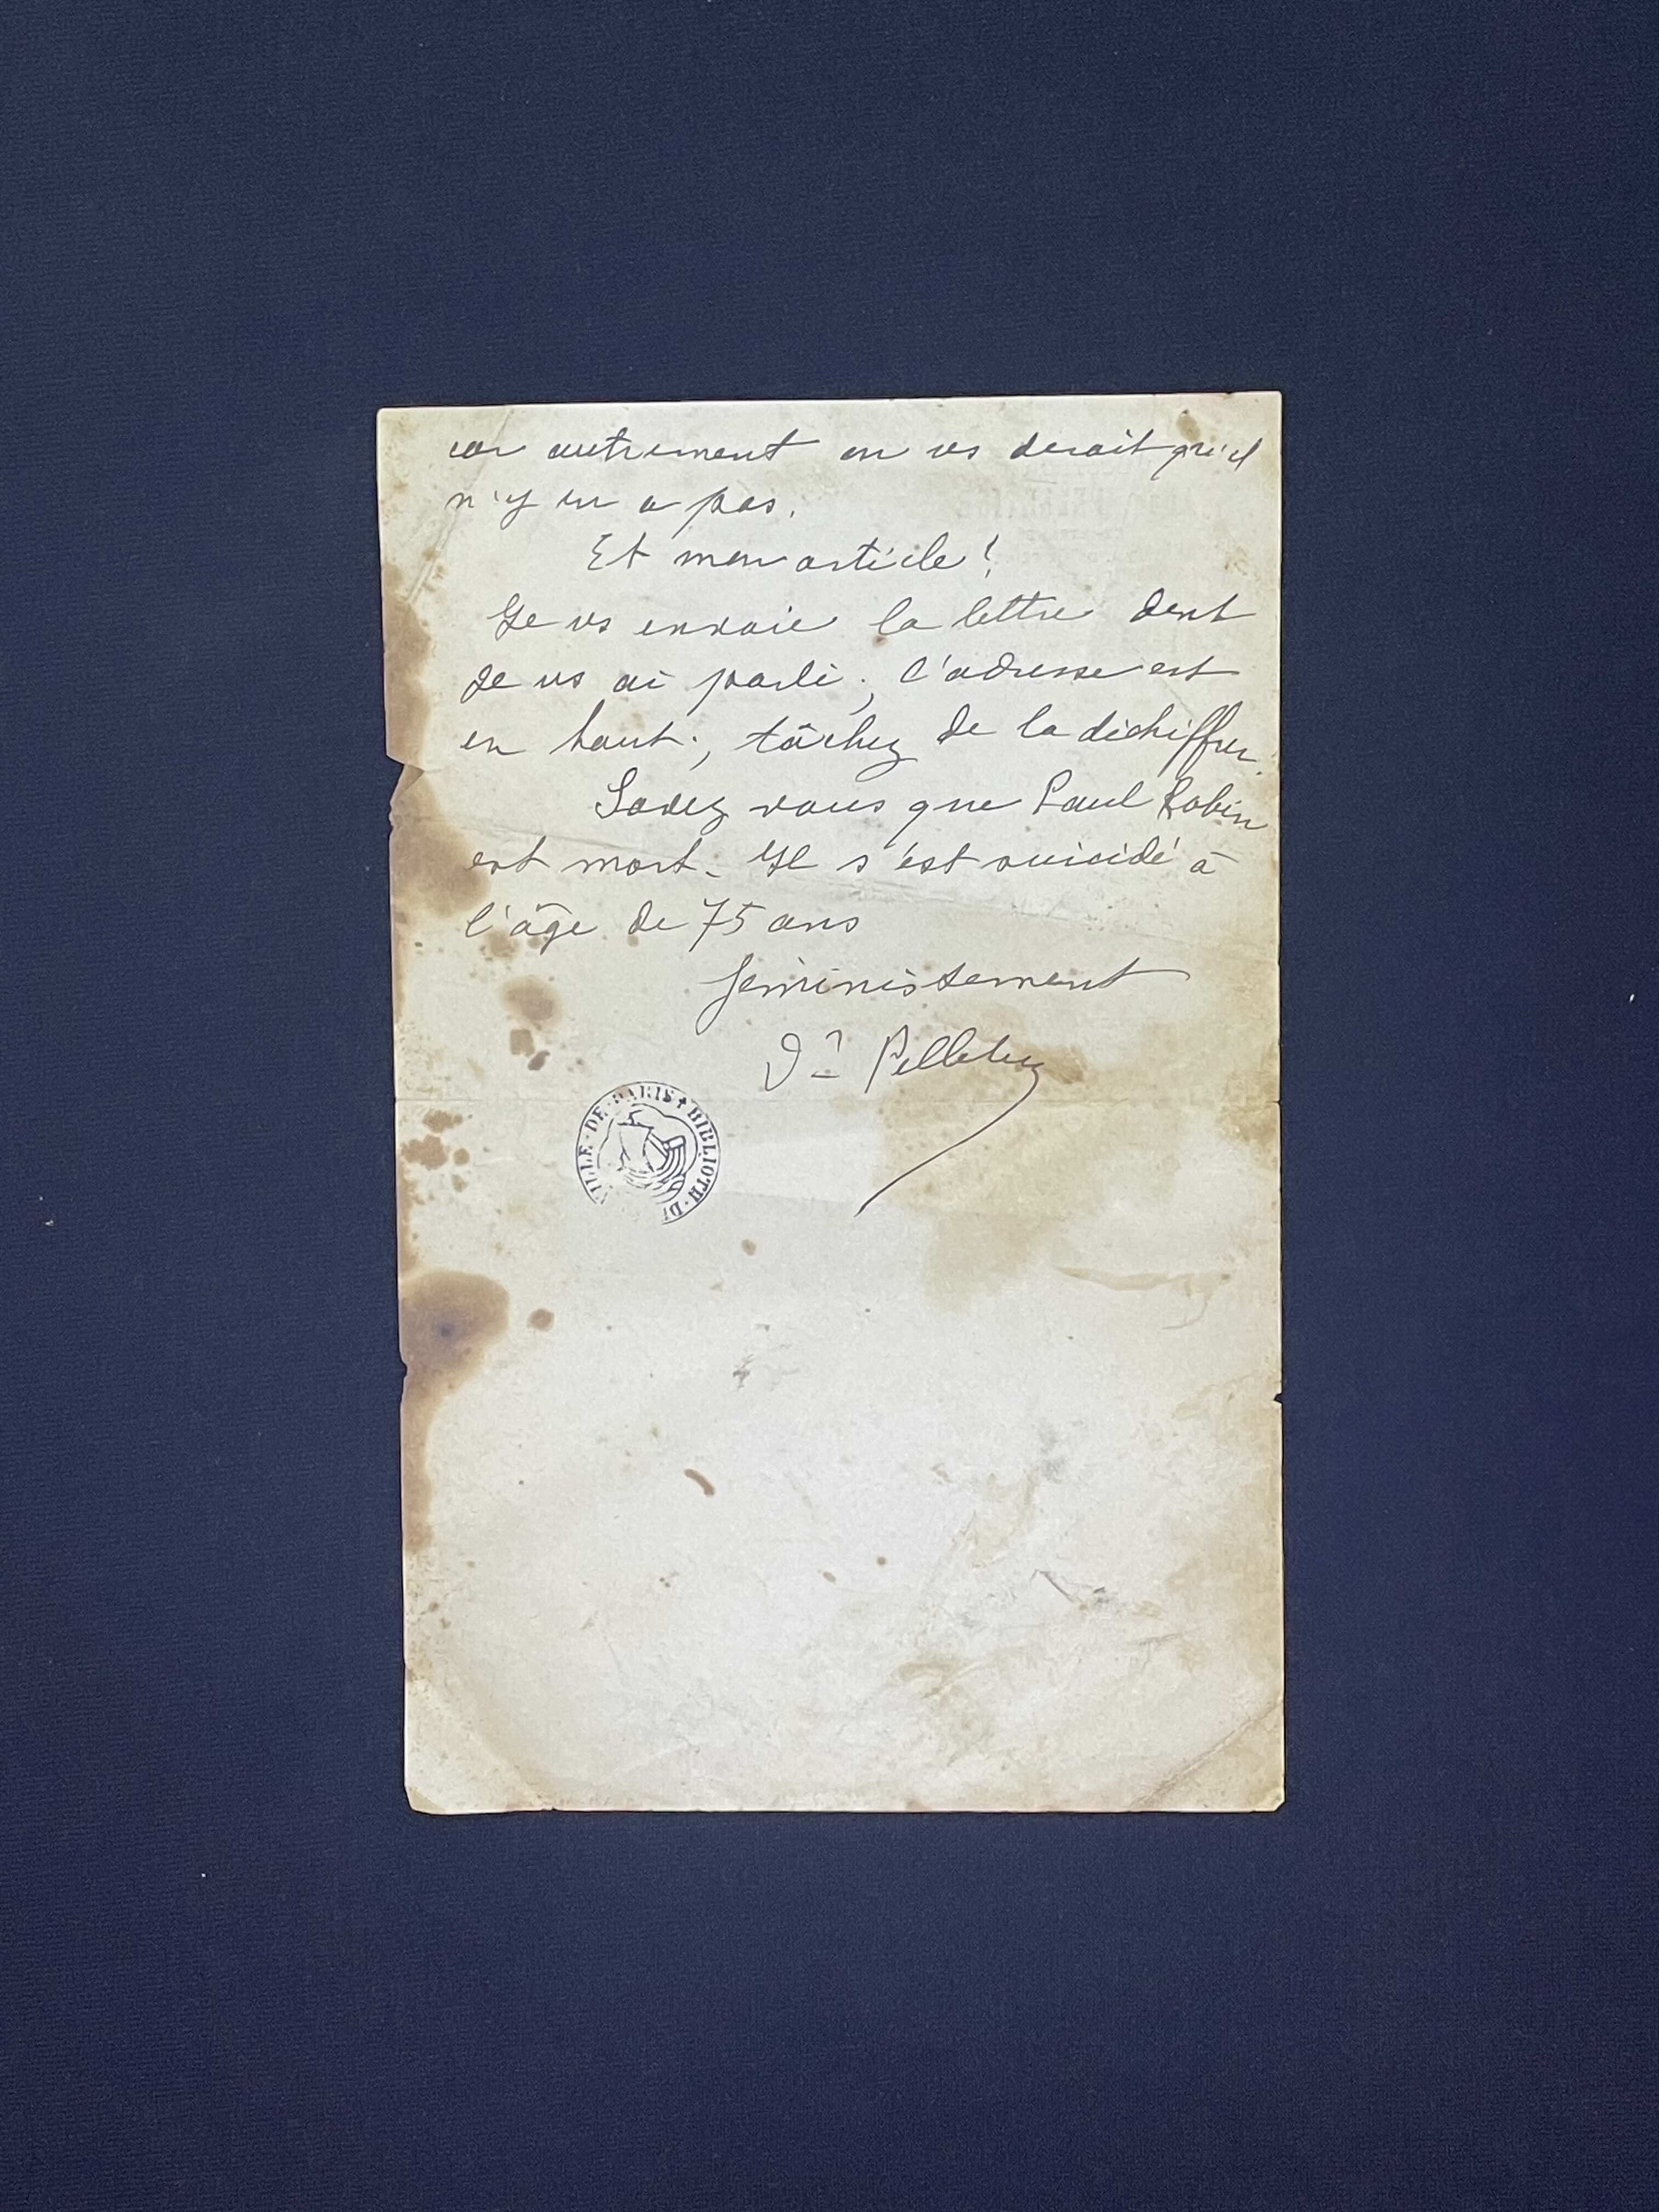 car autrement on vs dirait qu'il
n'y en a pas.
Et mon article !
Je vs envoie la lettre dont
je vs ai parlé ; l'adresse est
en haut ; tâchez de la déchiffrer.
Savez vous que Paul Robin
est mort. Il s'est suicidé à
l'âge de 75 ans
féministement
Dr Pelletier
VILLE·DE·PARIS BIBLIOTH·D